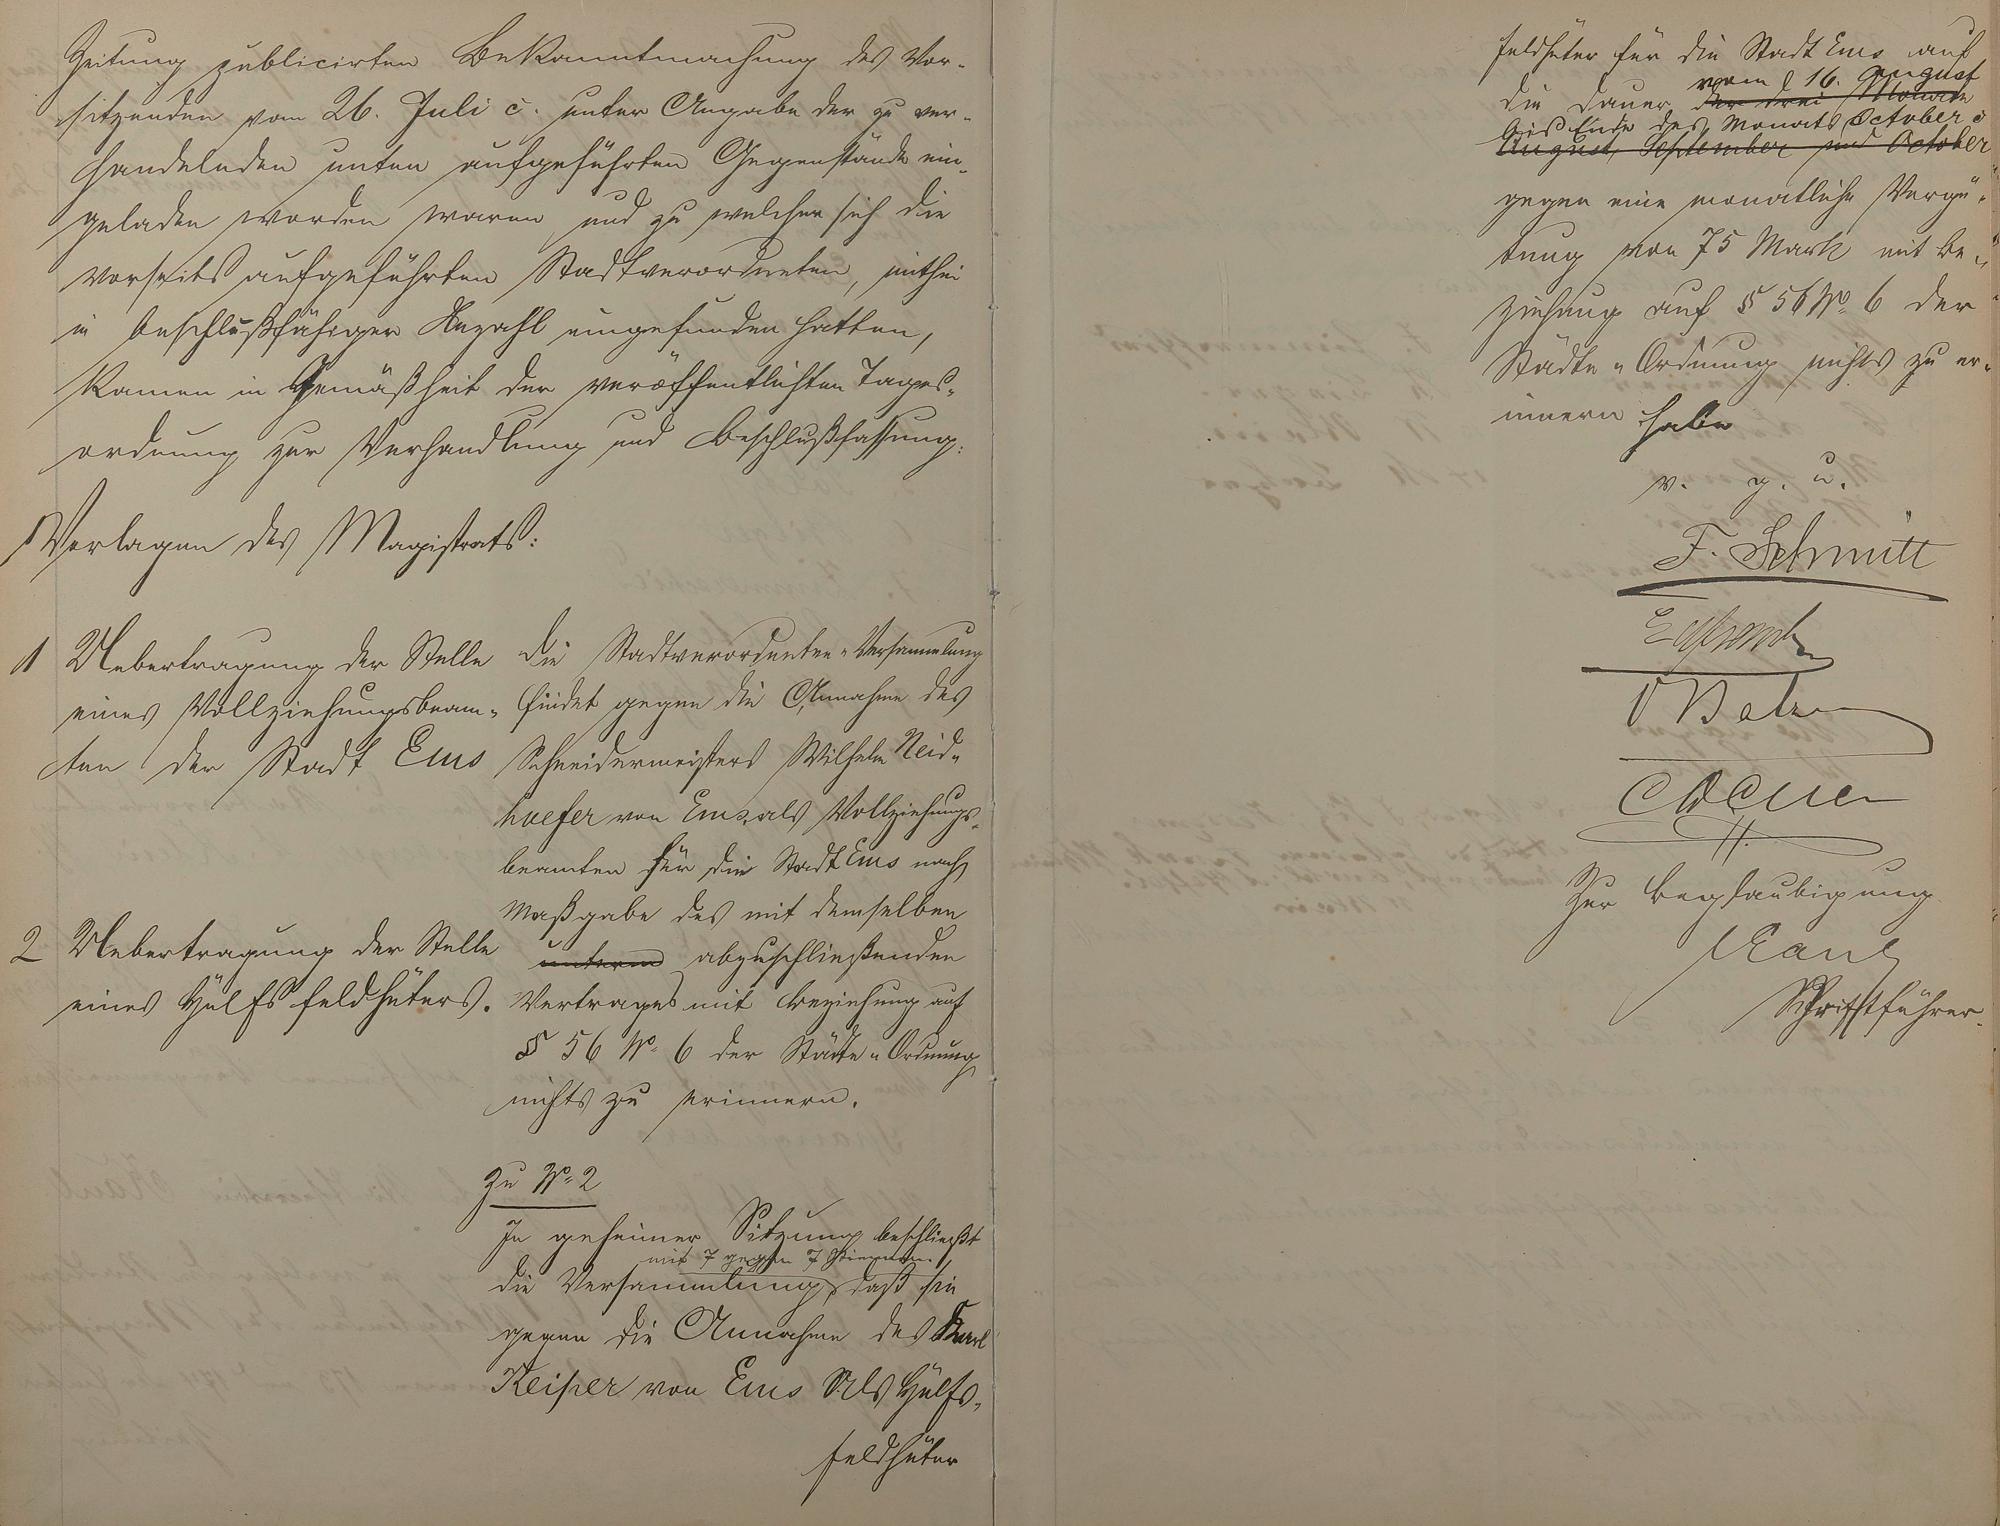 Zeitung publicirten Bekanntmachung des Vor-
sitzenden vom 26. Juli c. unter Angabe der zu ver-
handelnden unten aufgeführten Gegenstände ein-
geladen worden waren und zu welcher sich die
vorseits aufgeführten Stadtverordneten, mithin
in beschlußfähiger Anzahl eingefunden hatten,
kamen in Gemäßheit der veröffentlichten Tages-
ordnung zur Verhandlung und Beschlußfassung:
Vorlagen des Magistrats:
1 Uebertragung der Stelle
eines Vollziehungsbeam-
ten der Stadt Ems
Die Stadtverordneten-Versammlung
findet gegen die Annahme des
Schneidermeisters Wilhelm Neid-
hoefer von Ems als Vollziehungs-
beamten für die Stadt Ems nach
Maßgabe des mit demselben
unterm abzuschließenden
Vertrages mit Beziehung auf
§ 56 No. 6 der Städte-Ordnung
nichts zu erinnern.
2 Uebertragung der Stelle
eines Hülfsfeldhüters.
Zu No. 2
In geheimer Sitzung beschließt
mit 7 gegen 7 Stimmen
die Versammlung, daß sie
gegen die Annahme des Karl
Keiper von Ems als Hülfs-
feldhüter
feldhüter für die Stadt Ems auf
vom 16. August
die Dauer der drei Monate
bis Ende des Monats October c
August, September und October
gegen eine monatliche Vergü-
tung von 75 Mark mit Be-
ziehung auf § 56 No. 6 der
Städte-Ordnung nichts zu er-
innern habe
v. g. u.
F. Schmitt
Zur Beglaubigung
Kaul
Schriftführer.